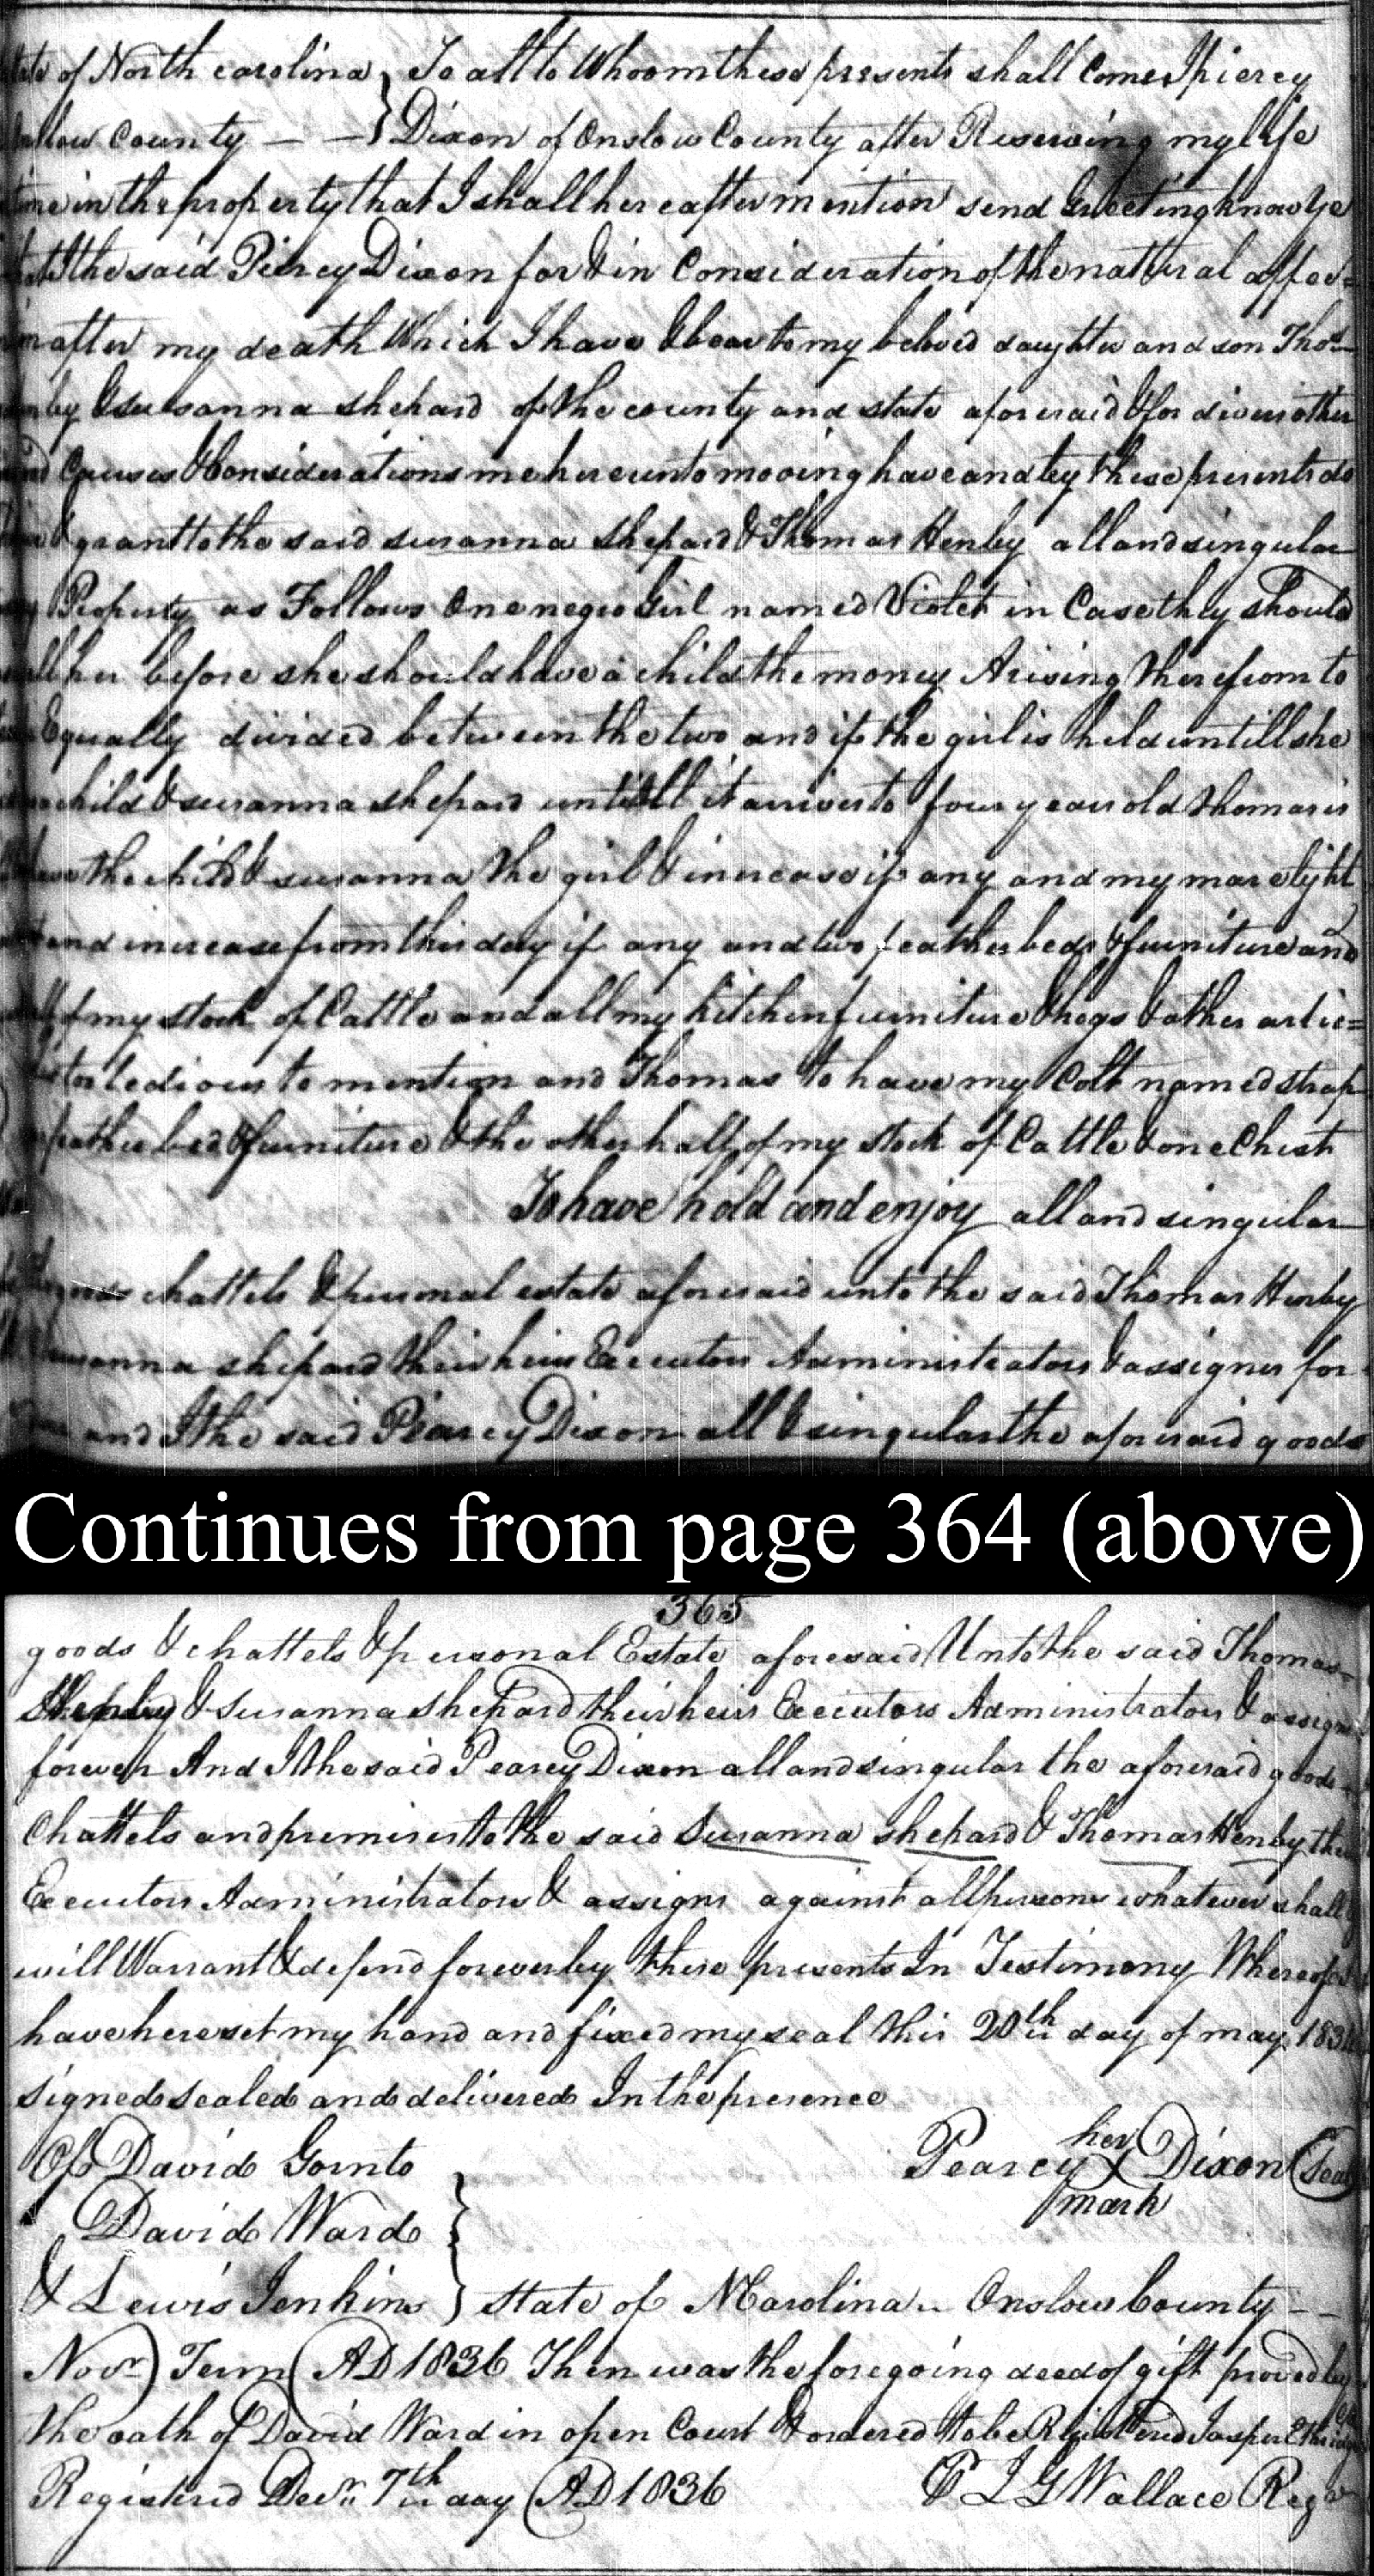 State of North carolina } To all to Whoom these presents shall Come I piercy
Onslow County — — } Dixon of Onslow County after Reserving my life
time in the property that I shall hereafter mention send Greeting know ye
that I the said Peircy Dixon for & in Consideration of the natural affec=
after my death Which I have & bear to my beloved daughter and son Thos
& susanna shepard of the county and state aforesaid & for divers other
Causes & Considerations me hereunto mooving have and by these presents do
& grant to the said susanna shepard & Thomas Henby all and singular
my Property as Follows One negro Girl named Violet in Case they should
sell her before she should have a child the money Arising therefrom to
be Equally divided between the two and if the girl is held untill she
child & susanna shepard untill it arives to four years old thomas is
to have the child & susanna the girl & increase if any and my mare light
and increase from this day if any and two feather beds & furniture and
half of my stock of Cattle and all my kitchen furniture & hogs & other artic=
too tedious to mention and Thomas to have my Colt named strap
feather bed & furniture & the other half of my stock of Cattle & one Chest
To have hold and enjoy all and singular
chattels & personal estate aforesaid unto the said Thomas Henby
susanna shepard their heirs Executors Administrators & assignes for
and I the said Piearcy Dixon all & singular the aforesaid goods
Continues from page 364 (above)
365
goods & chattels & personal Estate aforesaid Unto the said Thomas
& susanna shepard their heirs Executors Administrators & assigns
forever And I the said Pearcy Dixon all and singular the aforesaid goods
Chattels and premises to the said Susanna shepard & Thomas Henby their
Executors Administrators & assigns against all persons whatever shall &
will Warrant & defend forever by these presents In Testimony Whereof I
have here set my hand and fixed my seal this 20th day of may 183
signed sealed and delivered In the presence
Of David Gornto
Pearcy her X mark Dixon (Seal)
David Ward }
& Lewis Jenkins } state of N Carolina .. Onslow County — —
Novr Term AD 1836 Then was the foregoing deed of gift proved by
the oath of David Ward in open Court & ordered to be Registered Jasper
Registered Decr 7th day AD 1836 P L G Wallace Regr